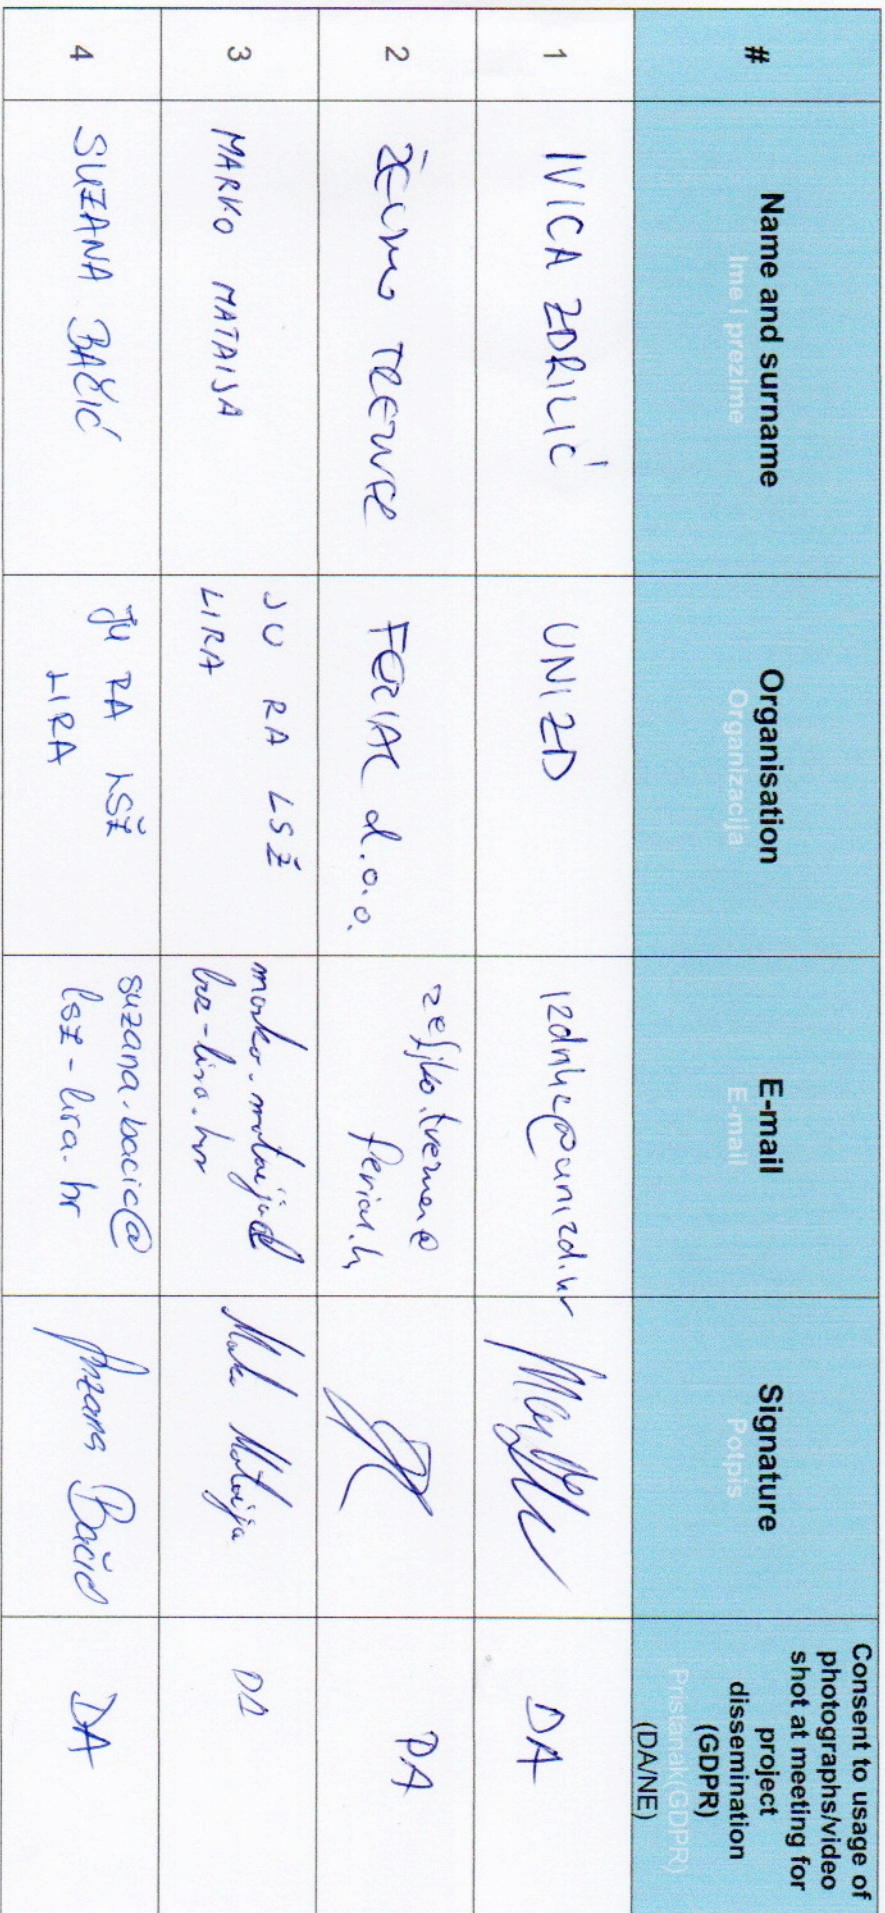 #
Name and surname
Ime i prezime
Organisation
Organizacija
E-mail
E-mail
Signature
Potpis
Consent to usage of
photographs/video
shot at meeting for
project
dissemination
(GDPR)
Pristanak(GDPR)
(DA/NE)
1
IVICA ZDRILIĆ
UNIZD
izdrilic@unizd.hr
DA
2
FERIAL d.o.o.
ferial.h
DA
3
MARKO MATAIJA
JU RA LSŽ
LIRA
marko.mataija@
lsz-lira.hr
Marko Mataija
DA
4
SUZANA BAČIĆ
JU RA LSŽ
LIRA
suzana.bacic@
lsz-lira.hr
Suzana Bačić
DA